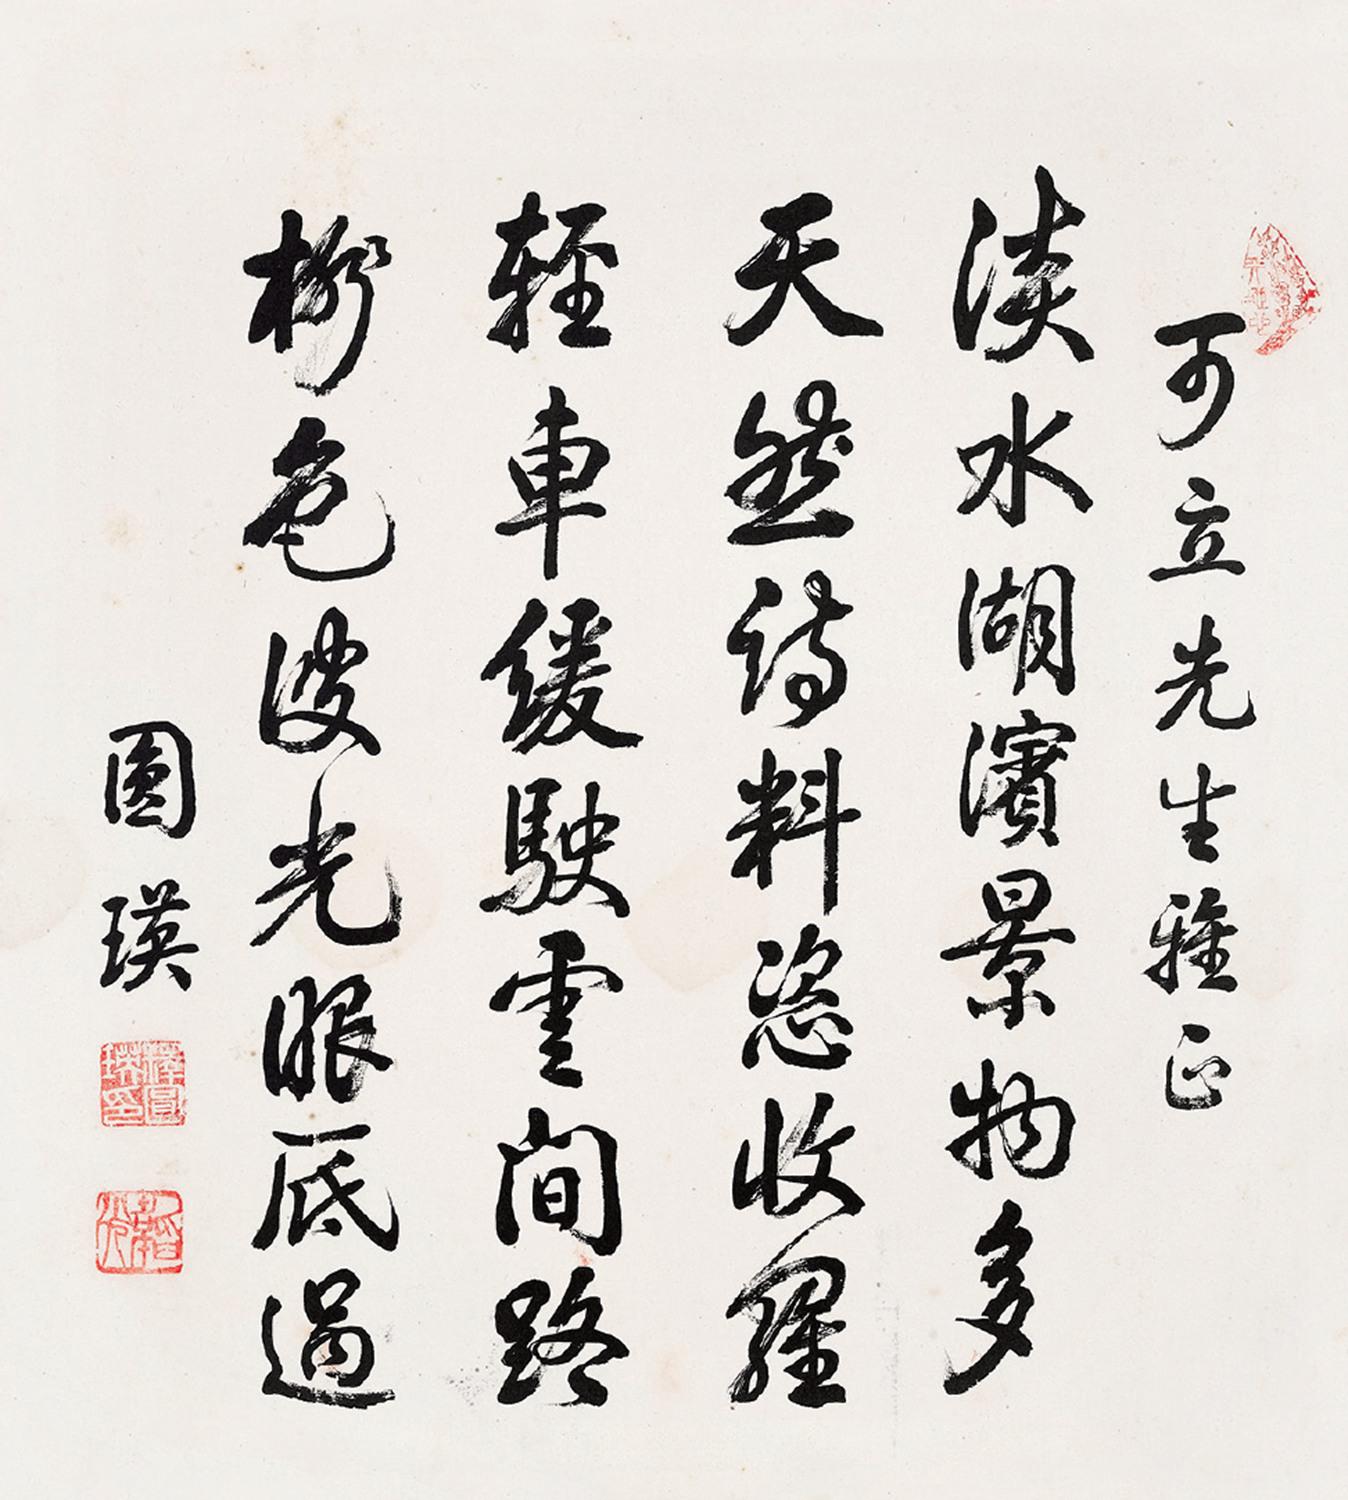 可立先生雅正
淡水湖濱景物多
天然詩料恣收羅
輕車緩駛雲間路
柳色波光眼底過
圓瑛
釋圓瑛印